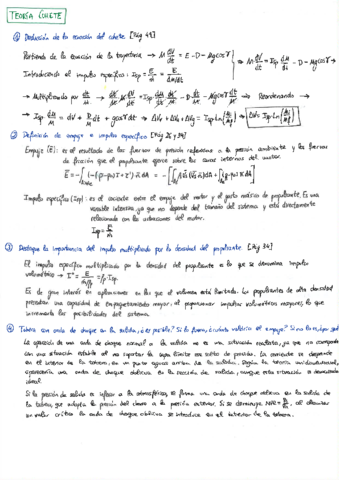 TEORÍA COHETE
① Deducción de la ecuación del cohete [Pág 41]
Partiendo de la ecuación de la trayectoria → M dV/dt = E - D - Mg cosγ
Introduciendo el impulso específico: Isp = E/ṁ = E/(dm/dt)
→ Multiplicando por dt/M
Reordenando →
② Definición de empuje e impulso específico [Pág 26 y 34]
Empuje (E): es el resultado de las fuerzas de presión referidas a la presión ambiente y las fuerzas
de fricción que el propulsante ejerce sobre las caras interiores del motor.
Impulso específico (Isp): es el cociente entre el empuje del motor y el gasto másico de propulsante. Es una
variable intensiva, ya que no depende del tamaño del sistema y está directamente
relacionada con las actuaciones del motor.
Isp = E/ṁ
③ Destaque la importancia del impulso multiplicado por la densidad del propulsante [Pág 34]
El impulso específico multiplicado por la densidad del propulsante a lo que se denomina impulso
volumétrico →
Es de gran interés en aplicaciones en las que el volumen está limitado. Los propulsantes de alta densidad
presentan una capacidad de empaquetamiento mayor, al proporcionar impulsos volumétricos mayores, lo que
incrementa las prestaciones del sistema.
④ Tobera con onda de choque en la salida, ¿es posible? Si lo fuera, ¿cuánto valdría el empuje? Si no lo es, ¿por qué?
La aparición de una onda de choque normal a la salida no es una situación realista, ya que no corresponde
con una situación estable al no soportar la capa límite ese salto de presión. La corriente se desprende
en el interior de la tobera, en un punto aguas arriba de la salida. Según la teoría unidimensional,
aparecería una onda de choque oblicua en la sección de salida, aunque esta situación es demasiado
ideal.
Si la presión de salida es inferior a la atmosférica, se forma una onda de choque oblicua en la salida de
la tobera, que adapta la presión del chorro a la presión exterior. Si se disminuye al alcanzar
un valor crítico la onda de choque oblicua se introduce en el interior de la tobera.